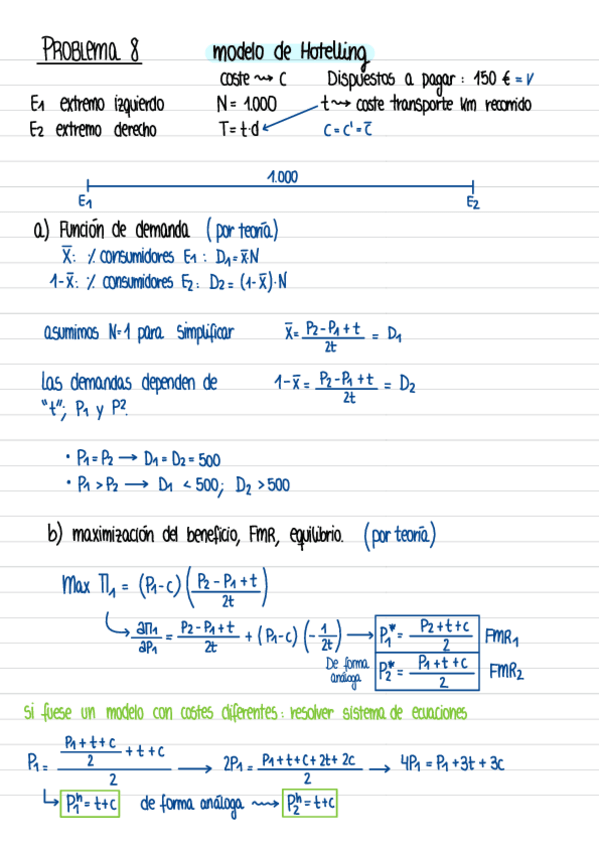 PROBLEMA 8 modelo de Hotelling
coste ⇝ c Dispuestos a pagar : 150 € = V
E1 extremo izquierdo N = 1.000 t ⇝ coste transporte km recorrido
E2 extremo derecho T = t·d c = c' = c̄
1.000
E1 E2
a) Función de demanda (por teoría)
X̄: % consumidores E1 : D1 = x̄·N
1-x̄: % consumidores E2: D2 = (1-x̄)·N
asumimos N=1 para simplificar x̄ = (P2-P1+t)/2t = D1
las demandas dependen de 1-x̄ = (P2-P1+t)/2t = D2
"t"; P1 y P2.
• P1 = P2 → D1 = D2 = 500
• P1 > P2 → D1 < 500; D2 > 500
b) maximización del beneficio, FMR, equilibrio. (por teoría)
Max Π1 = (P1-c) ((P2-P1+t)/2t)
∂Π1/∂P1 = (P2-P1+t)/2t + (P1-c) (-1/2t) → P1* = (P2+t+c)/2 FMR1
De forma análoga P2* = (P1+t+c)/2 FMR2
si fuese un modelo con costes diferentes: resolver sistema de ecuaciones
P1 = ((P1+t+c)/2 + t + c)/2 → 2P1 = (P1+t+c+2t+2c)/2 → 4P1 = P1 + 3t + 3c
P1ʰ = t+c de forma análoga ⇝ P2ʰ = t+c